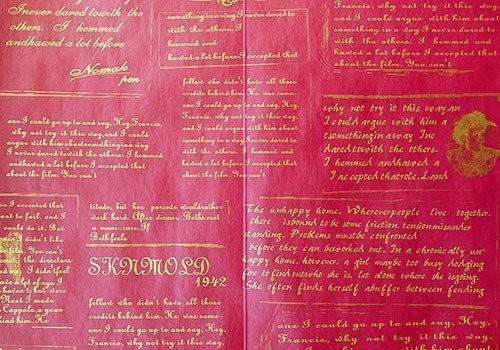 Inever dared towith the
others. I hemmed
andhawed a lot before
Nomak
pen
somethinginawayInever dared to
with the others. I
hemmed and
hawed a lot before I accepted that
Francis, why not try it this way
and I could argue with him about
something in a way I never dared to
with the others. I hemmed and
hawed a lot before I accepted that
about the film. You can't
follow who didn't have all those
credits behind him. He was some-
one I could go up to and say, Hey,
Francis, why not try it this way,
and I could argue with him about
something in a way I never dared to
with the others. I hemmed and
hawed a lot before I accepted that
about the film. You can't
one I could go up to and say, Hey, Francis,
why not try it this way, and I could
argue with him aboutsomethinginaway
I never dared to with the others. I hemmed
andhawed a lot before I accepted that
about the film. You can't
why not try it this way, an
I could argue with him a
tsomethingin away Ine
daredtowith the others.
I hemmed andhawed a
I accepted thatrole. Land
I accepted that
want to fail, and I
could do it. But
didn't like
film. You can't
the directors
and I didn't feel
have a lot of ego I
haven't but were
Next I made
Coppola, a young
behind him. He
titude, but her parents wouldrather
work hard. After dinner Beths not
a mani-cure. If
Beth feels
SKNMOLD
1942
follow who didn't have all those
credits behind him. He was some-
one I could go up to and say, Hey,
Francis, why not try it this way,
The unhappy home. Whereverpeople live together,
there isbound to be some friction, tensionmisunder
standing. Problems must be confronted
before they can beworked out. In a chronically un-
happy home, however, a girl maybe too busy dodging
fire to findoutwho she is, let alone where she isgoing.
She often finds herself abuffer between feeding
one I could go up to and say, Hey,
Francis, why not try it this way,